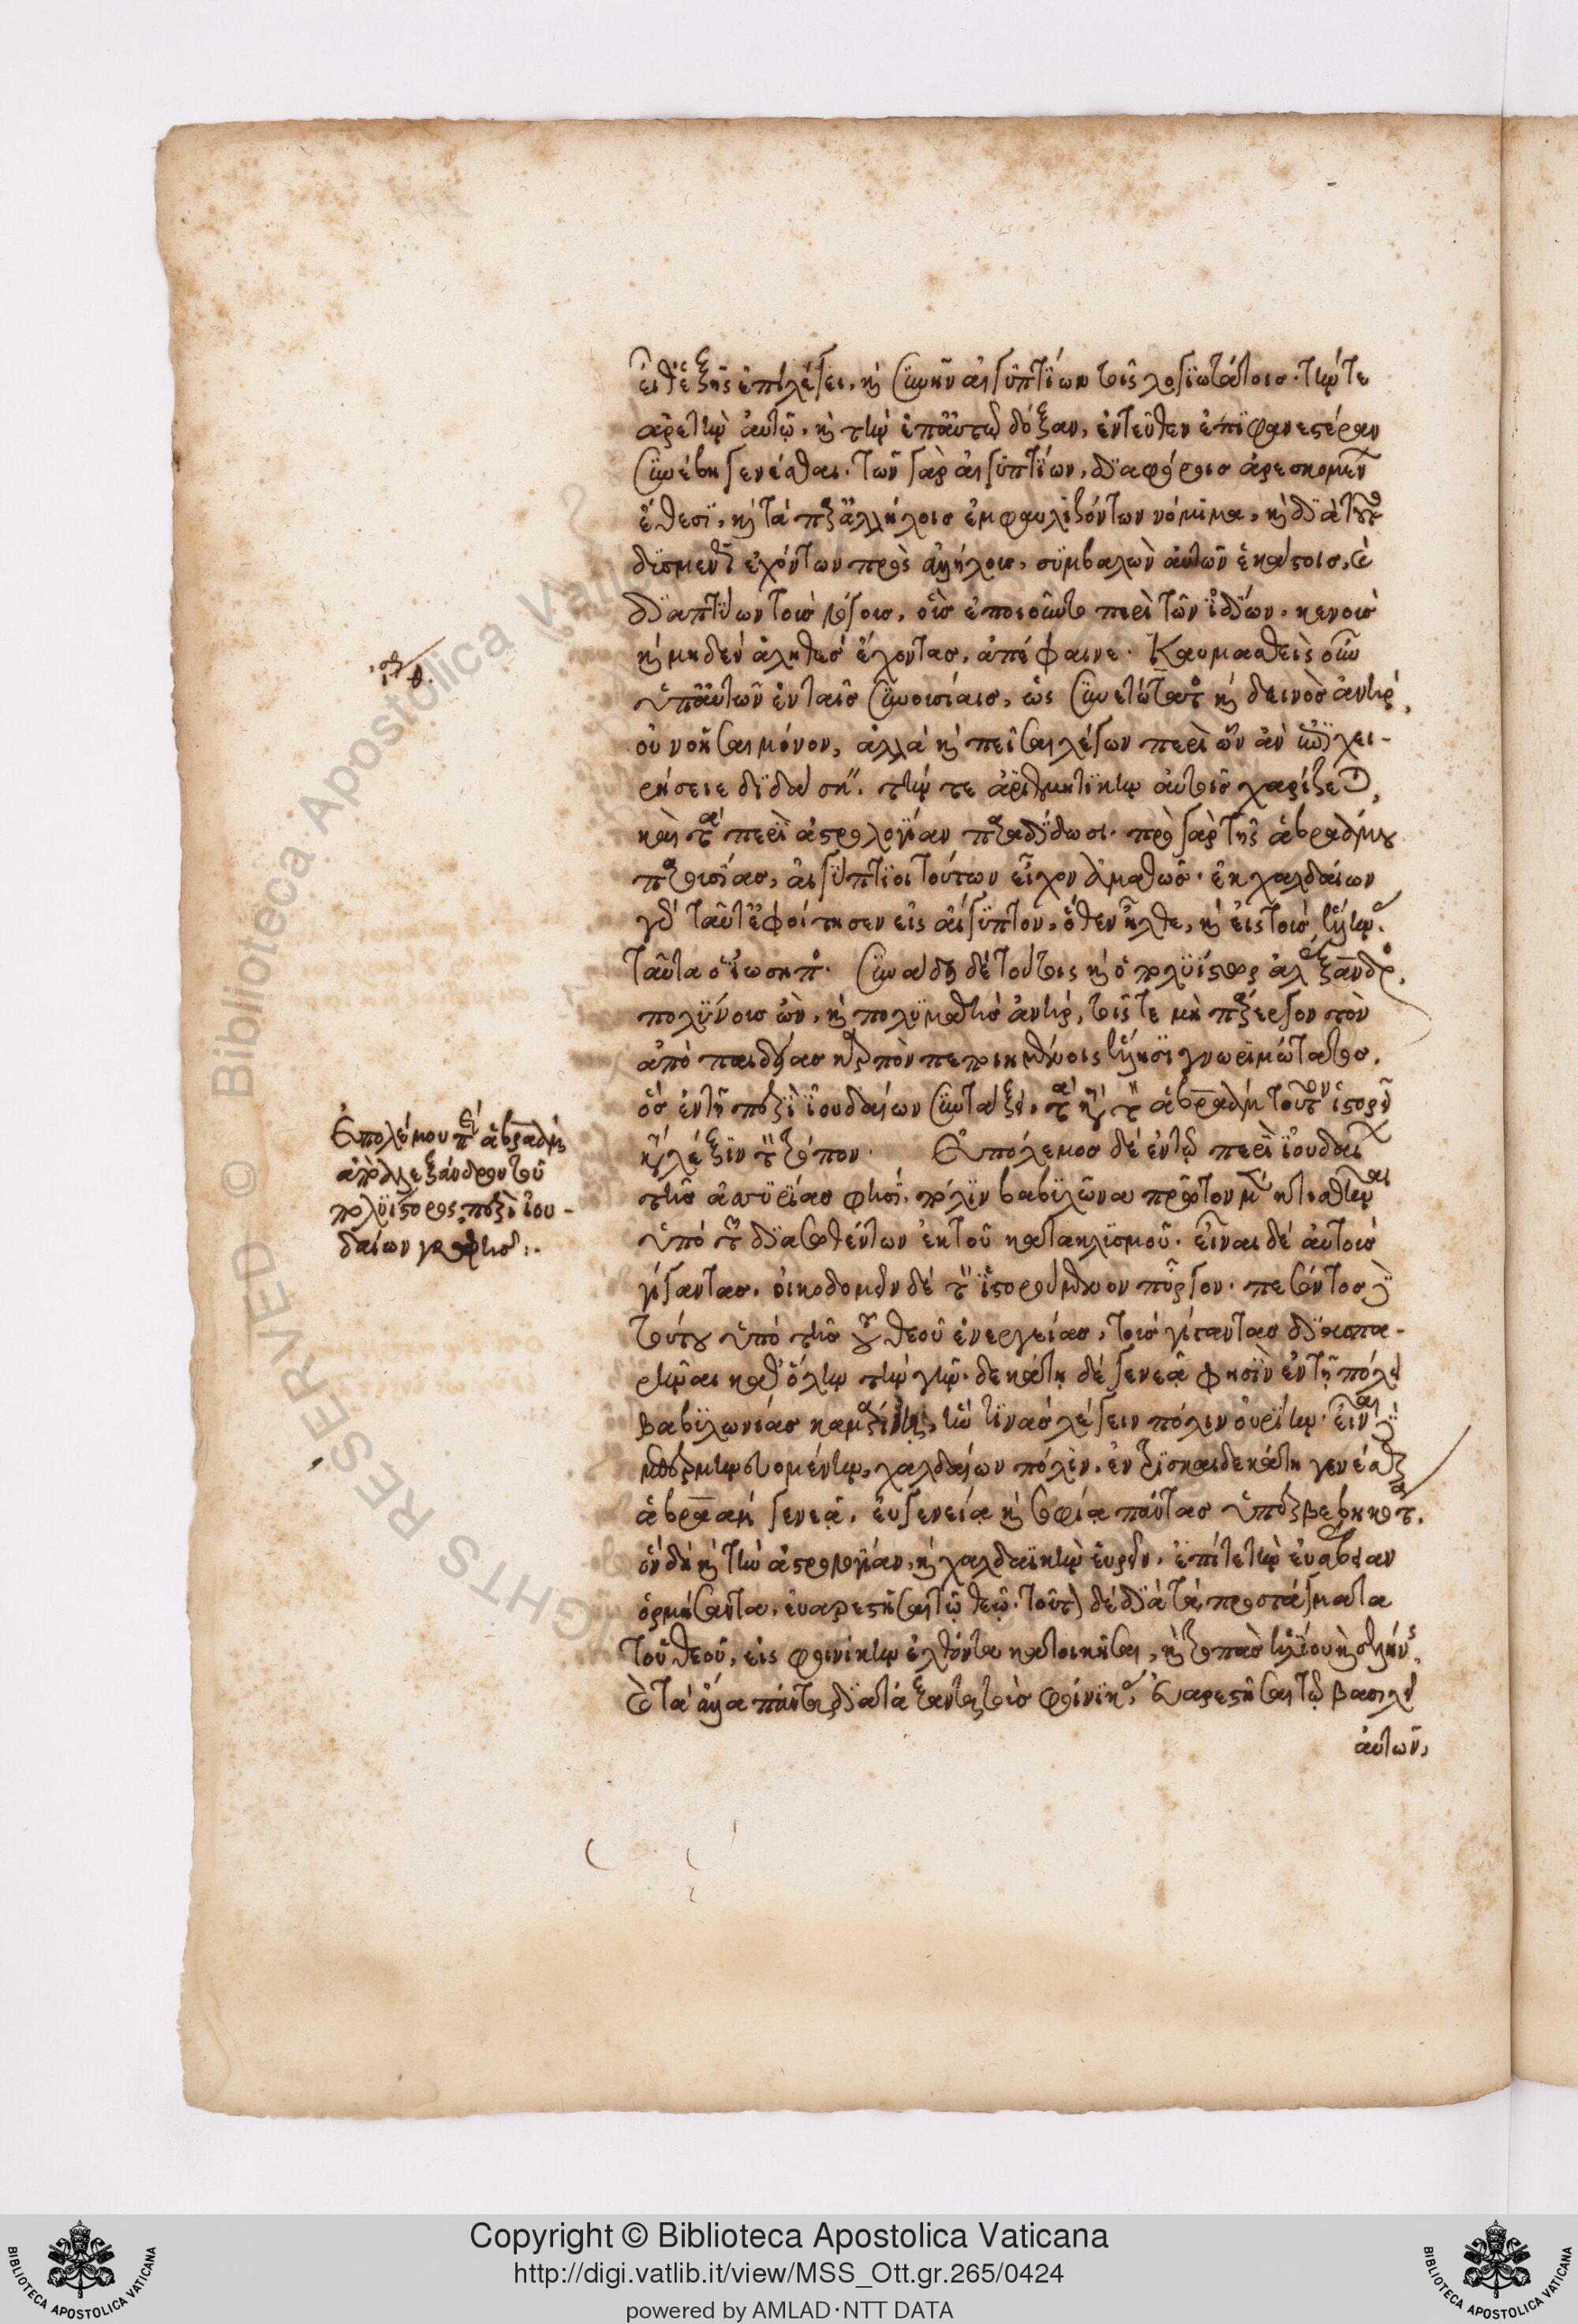 εἶθ' ἑξῆς ἐπιλέγει, καὶ συνῆν αἰγυπτίων τοῖς λογιωτάτοις. τήν τε
ἀρετὴν αὐτῶ, καὶ τὴν ἐπ' αὐτῶ δόξαν, ἐντεῦθεν ἐπιφανεστέραν
συνέβη γενέσθαι. τῶν γὰρ αἰγυπτίων, διαφόροις ἀρεσκομένων
ἔθεσι, καὶ τὰ παρ' ἀλλήλοις ἐμφαυλιζόντων νόμιμα, καὶ διὰ τοῦτο
δυσμενῶς ἐχόντων πρὸς ἀλλήλους, συμβαλὼν αὐτῶν ἑκάστοις, καὶ
διαπτύων τοὺς λόγους, οὓς ἐποιοῦντο περὶ τῶν ἰδίων, κενοὺς
καὶ μηδὲν ἀληθὲς ἔχοντας, ἀπέφαινε. θαυμασθεὶς οὖν
ὑπ' αὐτῶν ἐν ταῖς συνουσίαις, ὡς συνετώτατος καὶ δεινὸς ἀνὴρ,
οὐ νοῆσαι μόνον, ἀλλὰ καὶ πεῖσαι λέγων περὶ ὧν ἂν ἐπιχει-
ρήσειε διδάσκειν. τήν τε ἀριθμητικὴν αὐτοῖς χαρίζεται,
καὶ τὰ περὶ ἀστρολογίαν παραδίδωσι. πρὸ γὰρ τῆς ἀβραάμου
παρουσίας, αἰγύπτιοι τούτων εἶχον ἀμαθῶς. ἐκ χαλδαίων
γὰρ ταῦτ' ἐφοίτησεν εἰς αἴγυπτον, ὅθεν ἦλθε, καὶ εἰς τοὺς ἕλληνας.
ταῦτα ὁ ἰώσηπος. συνάδει δὲ τούτοις καὶ ὁ πολυίστωρ ἀλέξανδρος,
πολύνους ὢν, καὶ πολυμαθὴς ἀνὴρ, τοῖς τε μὴ πάρεργον τὸν
ἀπὸ παιδείας καρπὸν πεποιημένοις ἕλλησι γνωριμώτατος,
ὃς ἐν τῆ περὶ ἰουδαίων συντάξει, τὰ κατὰ τὸν ἀβραὰμ τοῦτον ἱστορεῖ
κατὰ λέξιν τὸν τρόπον. Εὐπόλεμος δὲ ἐν τῶ περὶ ἰουδαίων
τῆς ἀσσυρίας φησὶ, πόλιν βαβυλῶνα πρῶτον μὲν κτισθῆναι
ὑπὸ τῶν διασωθέντων ἐκ τοῦ κατακλυσμοῦ. εἶναι δὲ αὐτοὺς
γίγαντας, οἰκοδομεῖν δὲ τὸν ἱστορούμενον πύργον. πεσόντος δὲ
τούτου ὑπὸ τῆς τοῦ θεοῦ ἐνεργείας, τοὺς γίγαντας διασπα-
ρῆναι καθ' ὅλην τὴν γῆν. δεκάτη δὲ γενεᾷ φησὶν ἐν τῇ πόλει
βαβυλωνίας καμαρίνη, ἥν τινας λέγειν πόλιν οὐρίην. εἶναι δὲ
μεθερμηνευομένην, χαλδαίων πόλιν. ἐν τρισκαιδεκάτη γενέσθαι
ἀβραὰμ γενεᾷ, εὐγενείᾳ καὶ σοφίᾳ πάντας ὑπερβεβηκότα.
ὃν δὴ καὶ τὴν ἀστρολογίαν, καὶ χαλδαϊκὴν εὑρεῖν, ἐπί τε τὴν εὐσέβειαν
ὁρμήσαντα, εὐαρεστῆσαι τῷ θεῷ. τοῦτον δὲ διὰ τὰ προστάγματα
τοῦ θεοῦ, εἰς φοινίκην ἐλθόντα κατοικῆσαι, καὶ τροπὰς ἡλίου καὶ σελήνης,
καὶ τὰ ἄλλα πάντα διδάξαντα τοὺς φοίνικας, εὐαρεστῆσαι τῷ βασιλεῖ
αὐτῶν,
Εὐπολέμου περὶ ἀβραὰμ
ἀπὸ ἀλεξάνδρου τοῦ
πολυίστορος περὶ ἰου-
δαίων γραφῆς: